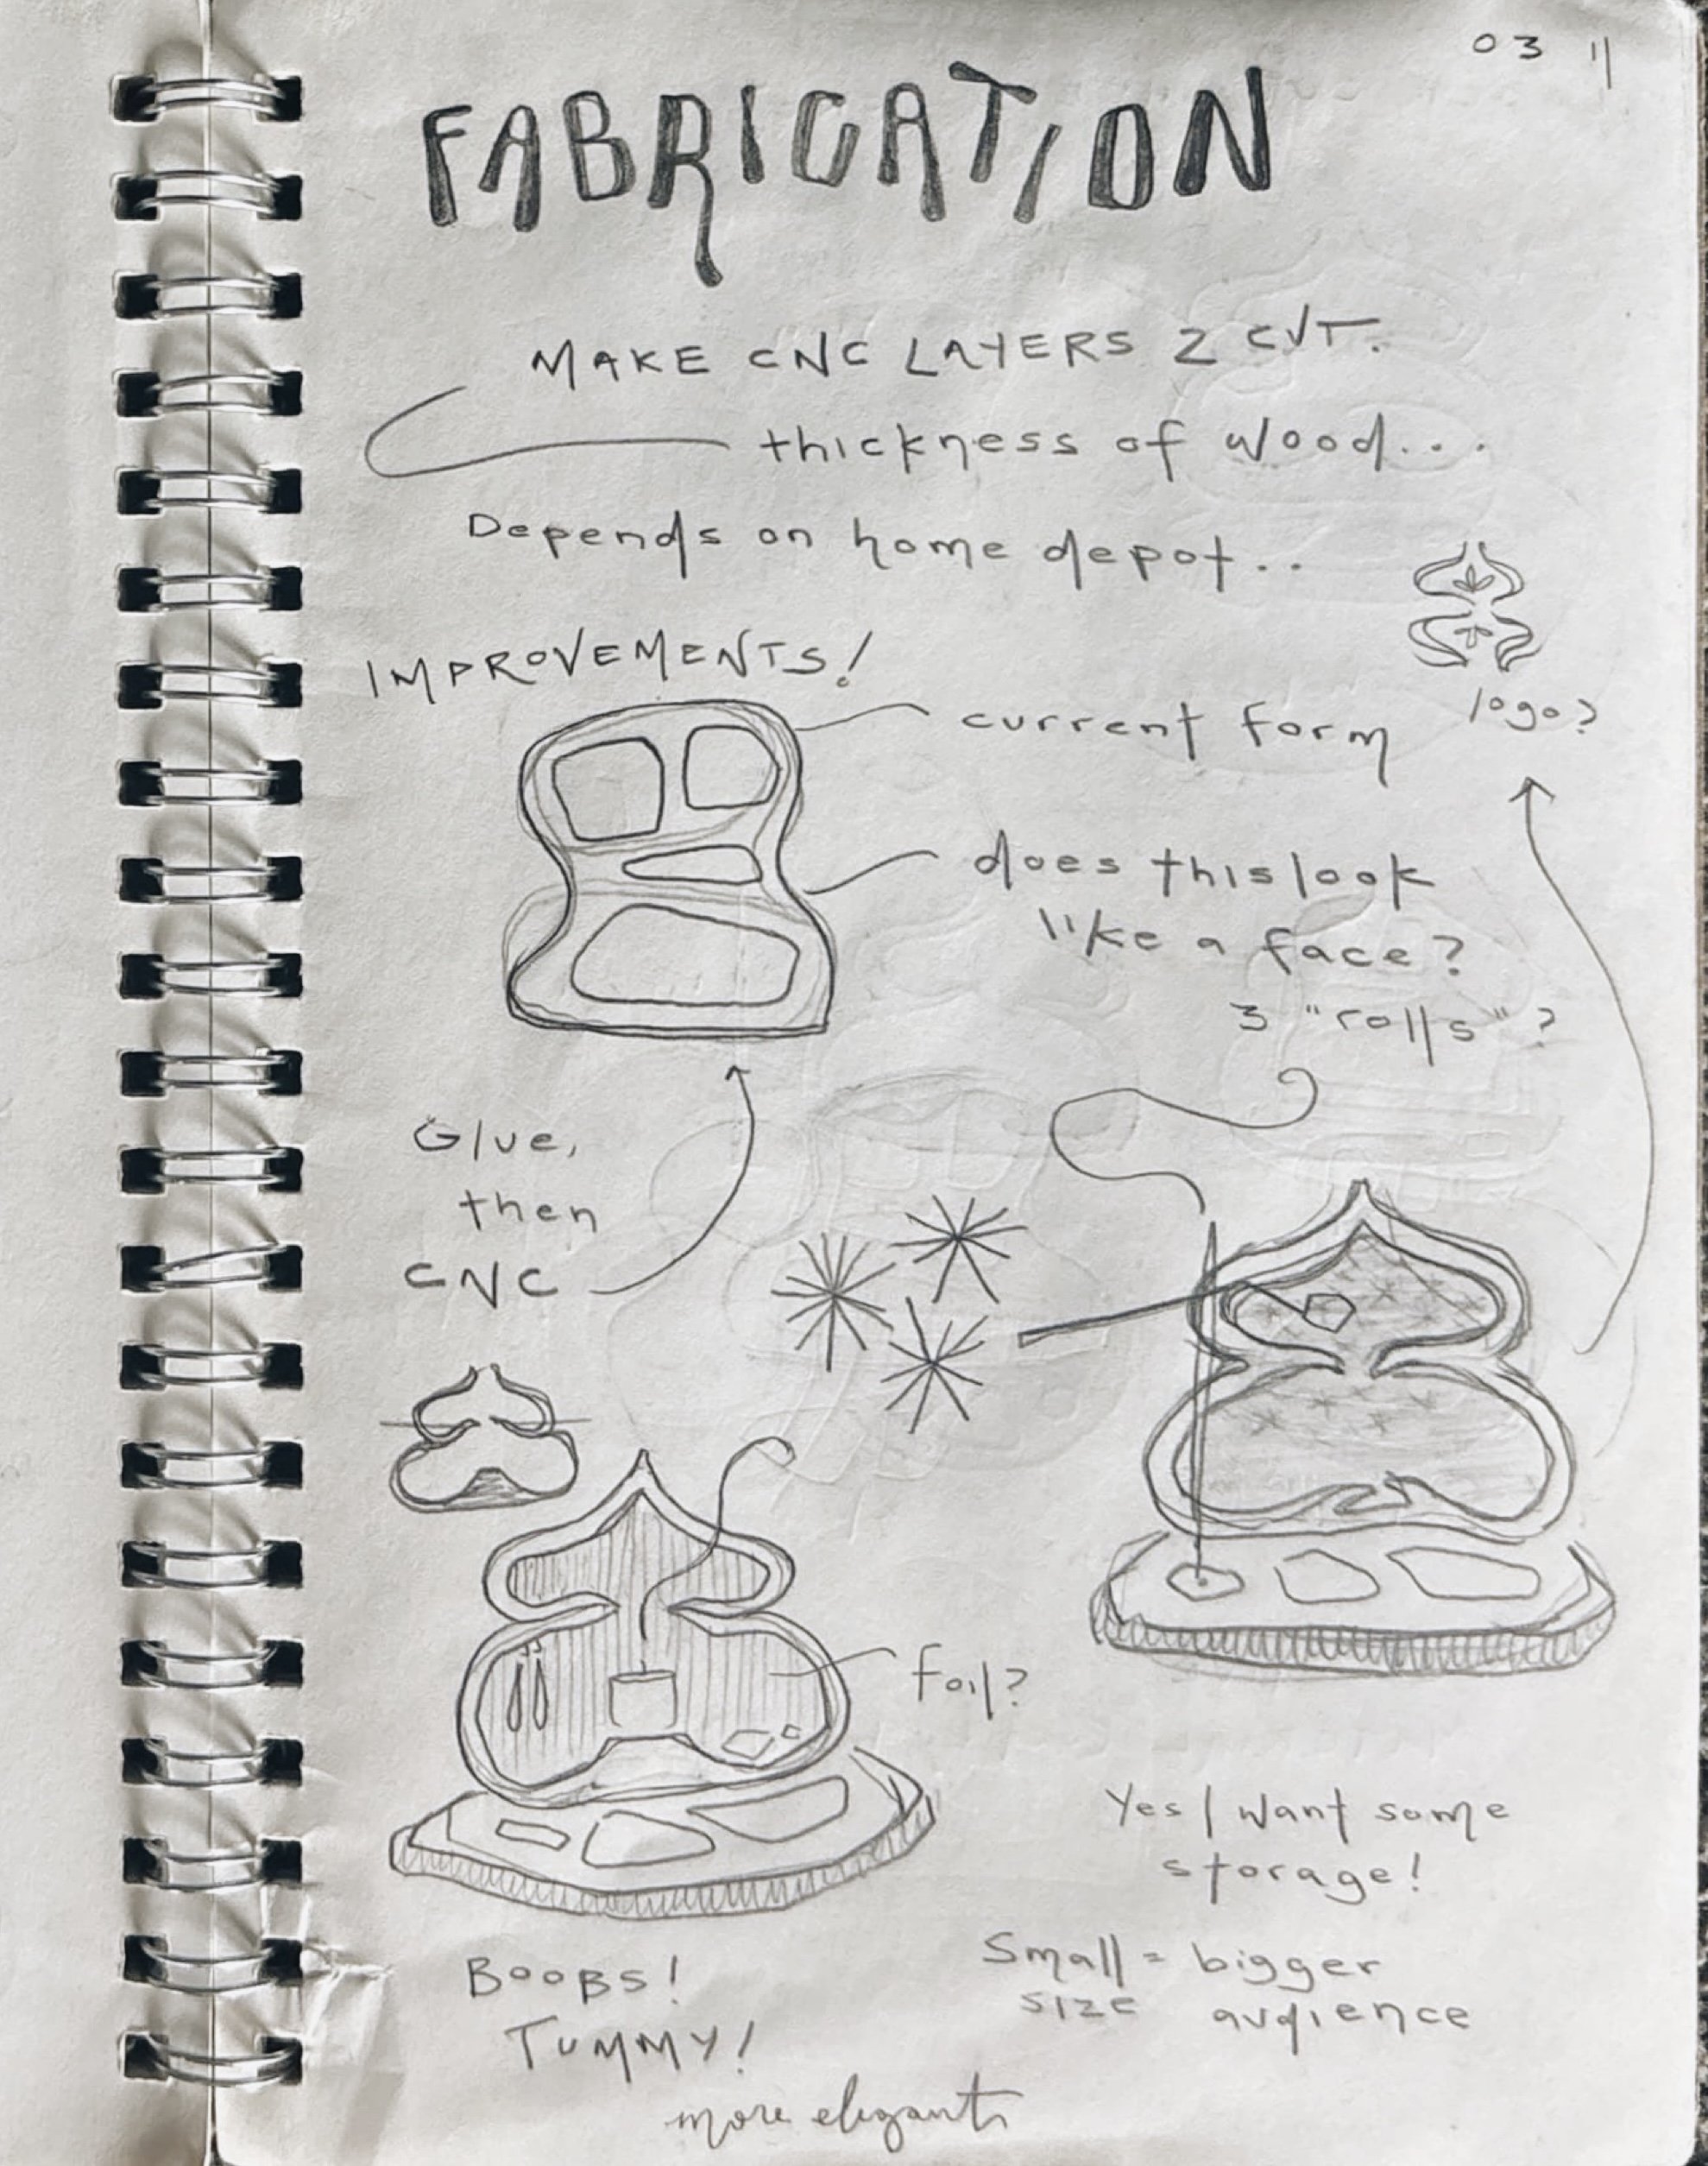 03 11
FABRICATION
MAKE CNC LAYERS 2 CUT.
thickness of wood...
Depends on home depot..
IMPROVEMENTS!
logo?
current form
does this look
like a face?
3 "rolls"?
Glue,
then
CNC
foil?
Yes I want some
storage!
Small = bigger
size audience
BOOBS!
TUMMY!
more elegant